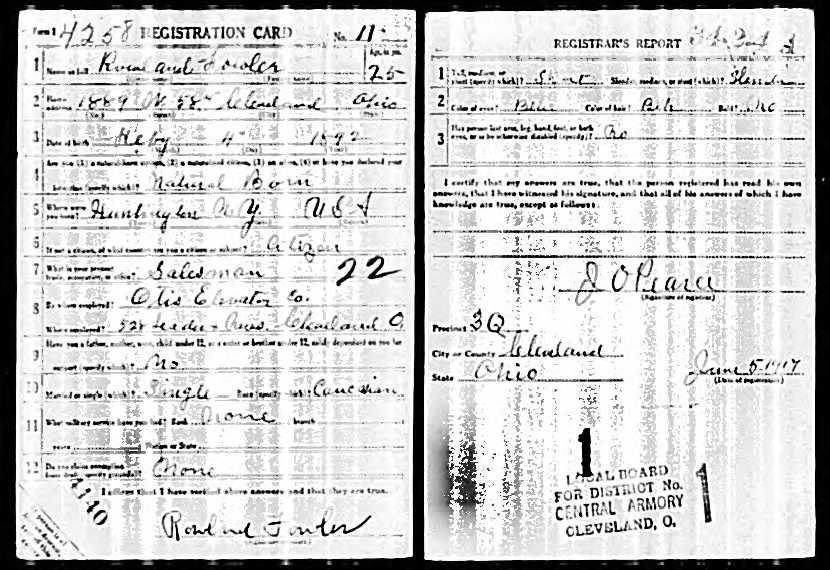 Form 1 4258 REGISTRATION CARD No. 11
1 Name in full Rowland Fowler Age, in yrs. 25
2 Home address 1889 W. 58th Cleveland Ohio
3 Date of birth 4 1892
4 Are you (1) a natural-born citizen, (2) a naturalized citizen, (3) an alien, (4) or have you declared your
intention (specify which)? Natural Born
5 Where were you born? Huntington N.Y. USA
6 If not a citizen, of what country are you a citizen or subject? Citizen
7 What is your present trade, occupation, or office? Salesman 22
8 By whom employed? Otis Elevator Co.
Where employed? Leader News. Cleveland O
9 Have you a father, mother, wife, child under 12, or a sister or brother under 12, solely dependent on you for
support (specify which)? No
10 Married or single (which)? Single Race (specify which)? Caucasian
11 What military service have you had? Rank None branch
years Nation or State
12 Do you claim exemption from draft (specify grounds)? None
I affirm that I have verified above answers and that they are true.
4140
Rowland Fowler
REGISTRAR'S REPORT
1 Tall, medium, or short (specify which)? Short Slender, medium, or stout (which)? Slender
2 Color of eyes? Blue Color of hair? Blk Bald? No
3 Has person lost arm, leg, hand, foot, or both eyes, or is he otherwise disabled (specify)? No
I certify that my answers are true, that the person registered has read his own
answers, that I have witnessed his signature, and that all of his answers of which I have
knowledge are true, except as follows:
J O Pearce
(Signature of registrar)
Precinct 3Q
City or County Cleveland
State Ohio
June 5-1917
(Date of registration)
1
LOCAL BOARD
FOR DISTRICT No. 1
CENTRAL ARMORY
CLEVELAND, O.